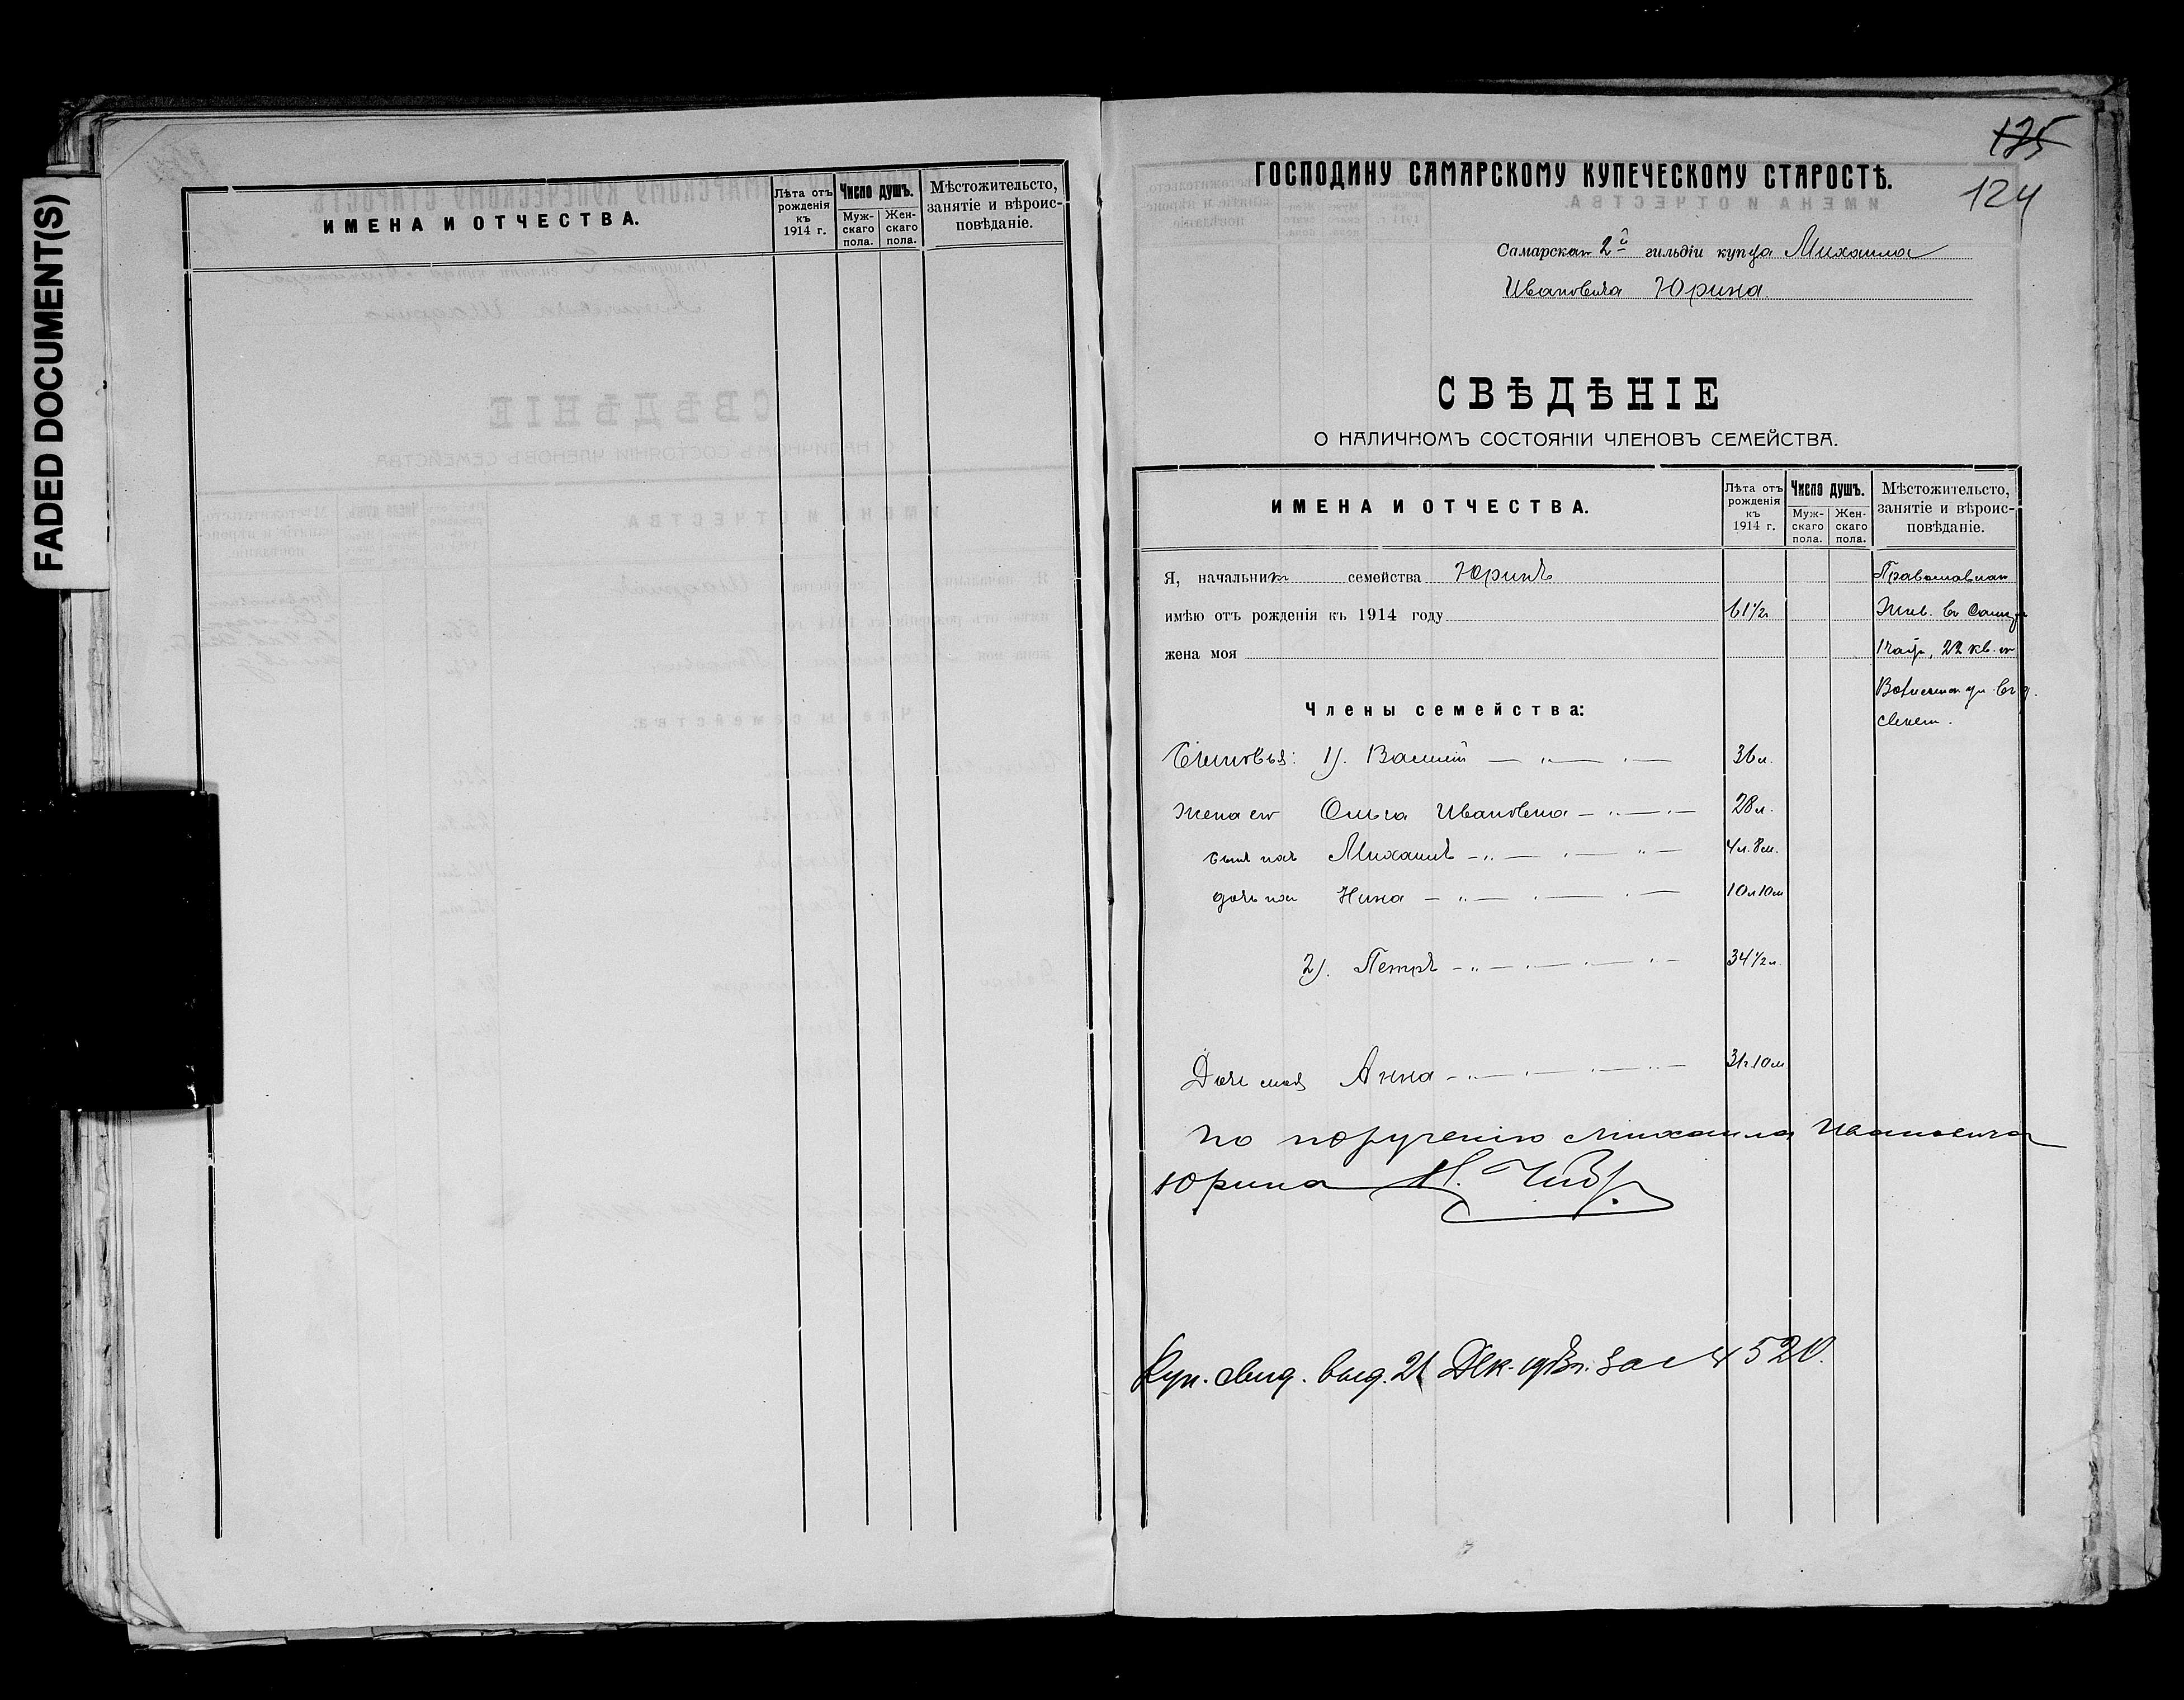 FADED DOCUMENT(S)
ИМЕНА И ОТЧЕСТВА.
Лѣта отъ рожденія къ 1914 г.
Число душъ.
Муж-скаго пола.
Жен-скаго пола.
Мѣстожительсто, занятіе и вѣроис-повѣданіе.
125
124
ГОСПОДИНУ САМАРСКОМУ КУПЕЧЕСКОМУ СТАРОСТѢ.
Самарскаго 2й гильдіи купца Михаила
Ивановича Юрина.
СВѢДѢНІЕ
О НАЛИЧНОМЪ СОСТОЯНІИ ЧЛЕНОВЪ СЕМЕЙСТВА.
ИМЕНА И ОТЧЕСТВА.
Лѣта отъ рожденія къ 1914 г.
Число душъ.
Муж-скаго пола.
Жен-скаго пола.
Мѣстожительсто, занятіе и вѣроис-повѣданіе.
Я, начальник семейства Юринъ
имѣю отъ рожденія къ 1914 году 61 1/2
Жив. въ
жена моя
22 кв.
Члены семейства:
Сыновья: 1). Василій 36 л.
Жена его Ольга Ивановна 28 л.
сынъ ихъ Михаилъ 4 л. 8 м.
дочь их Нина 10 л 10 м
2). Петръ 34 1/2 л.
Дочь моя Анна 31 г 10 м
по порученію Михаила Ивановича
Юрина Н.
Куп. свид. выд. 21 Дек. за № 520.